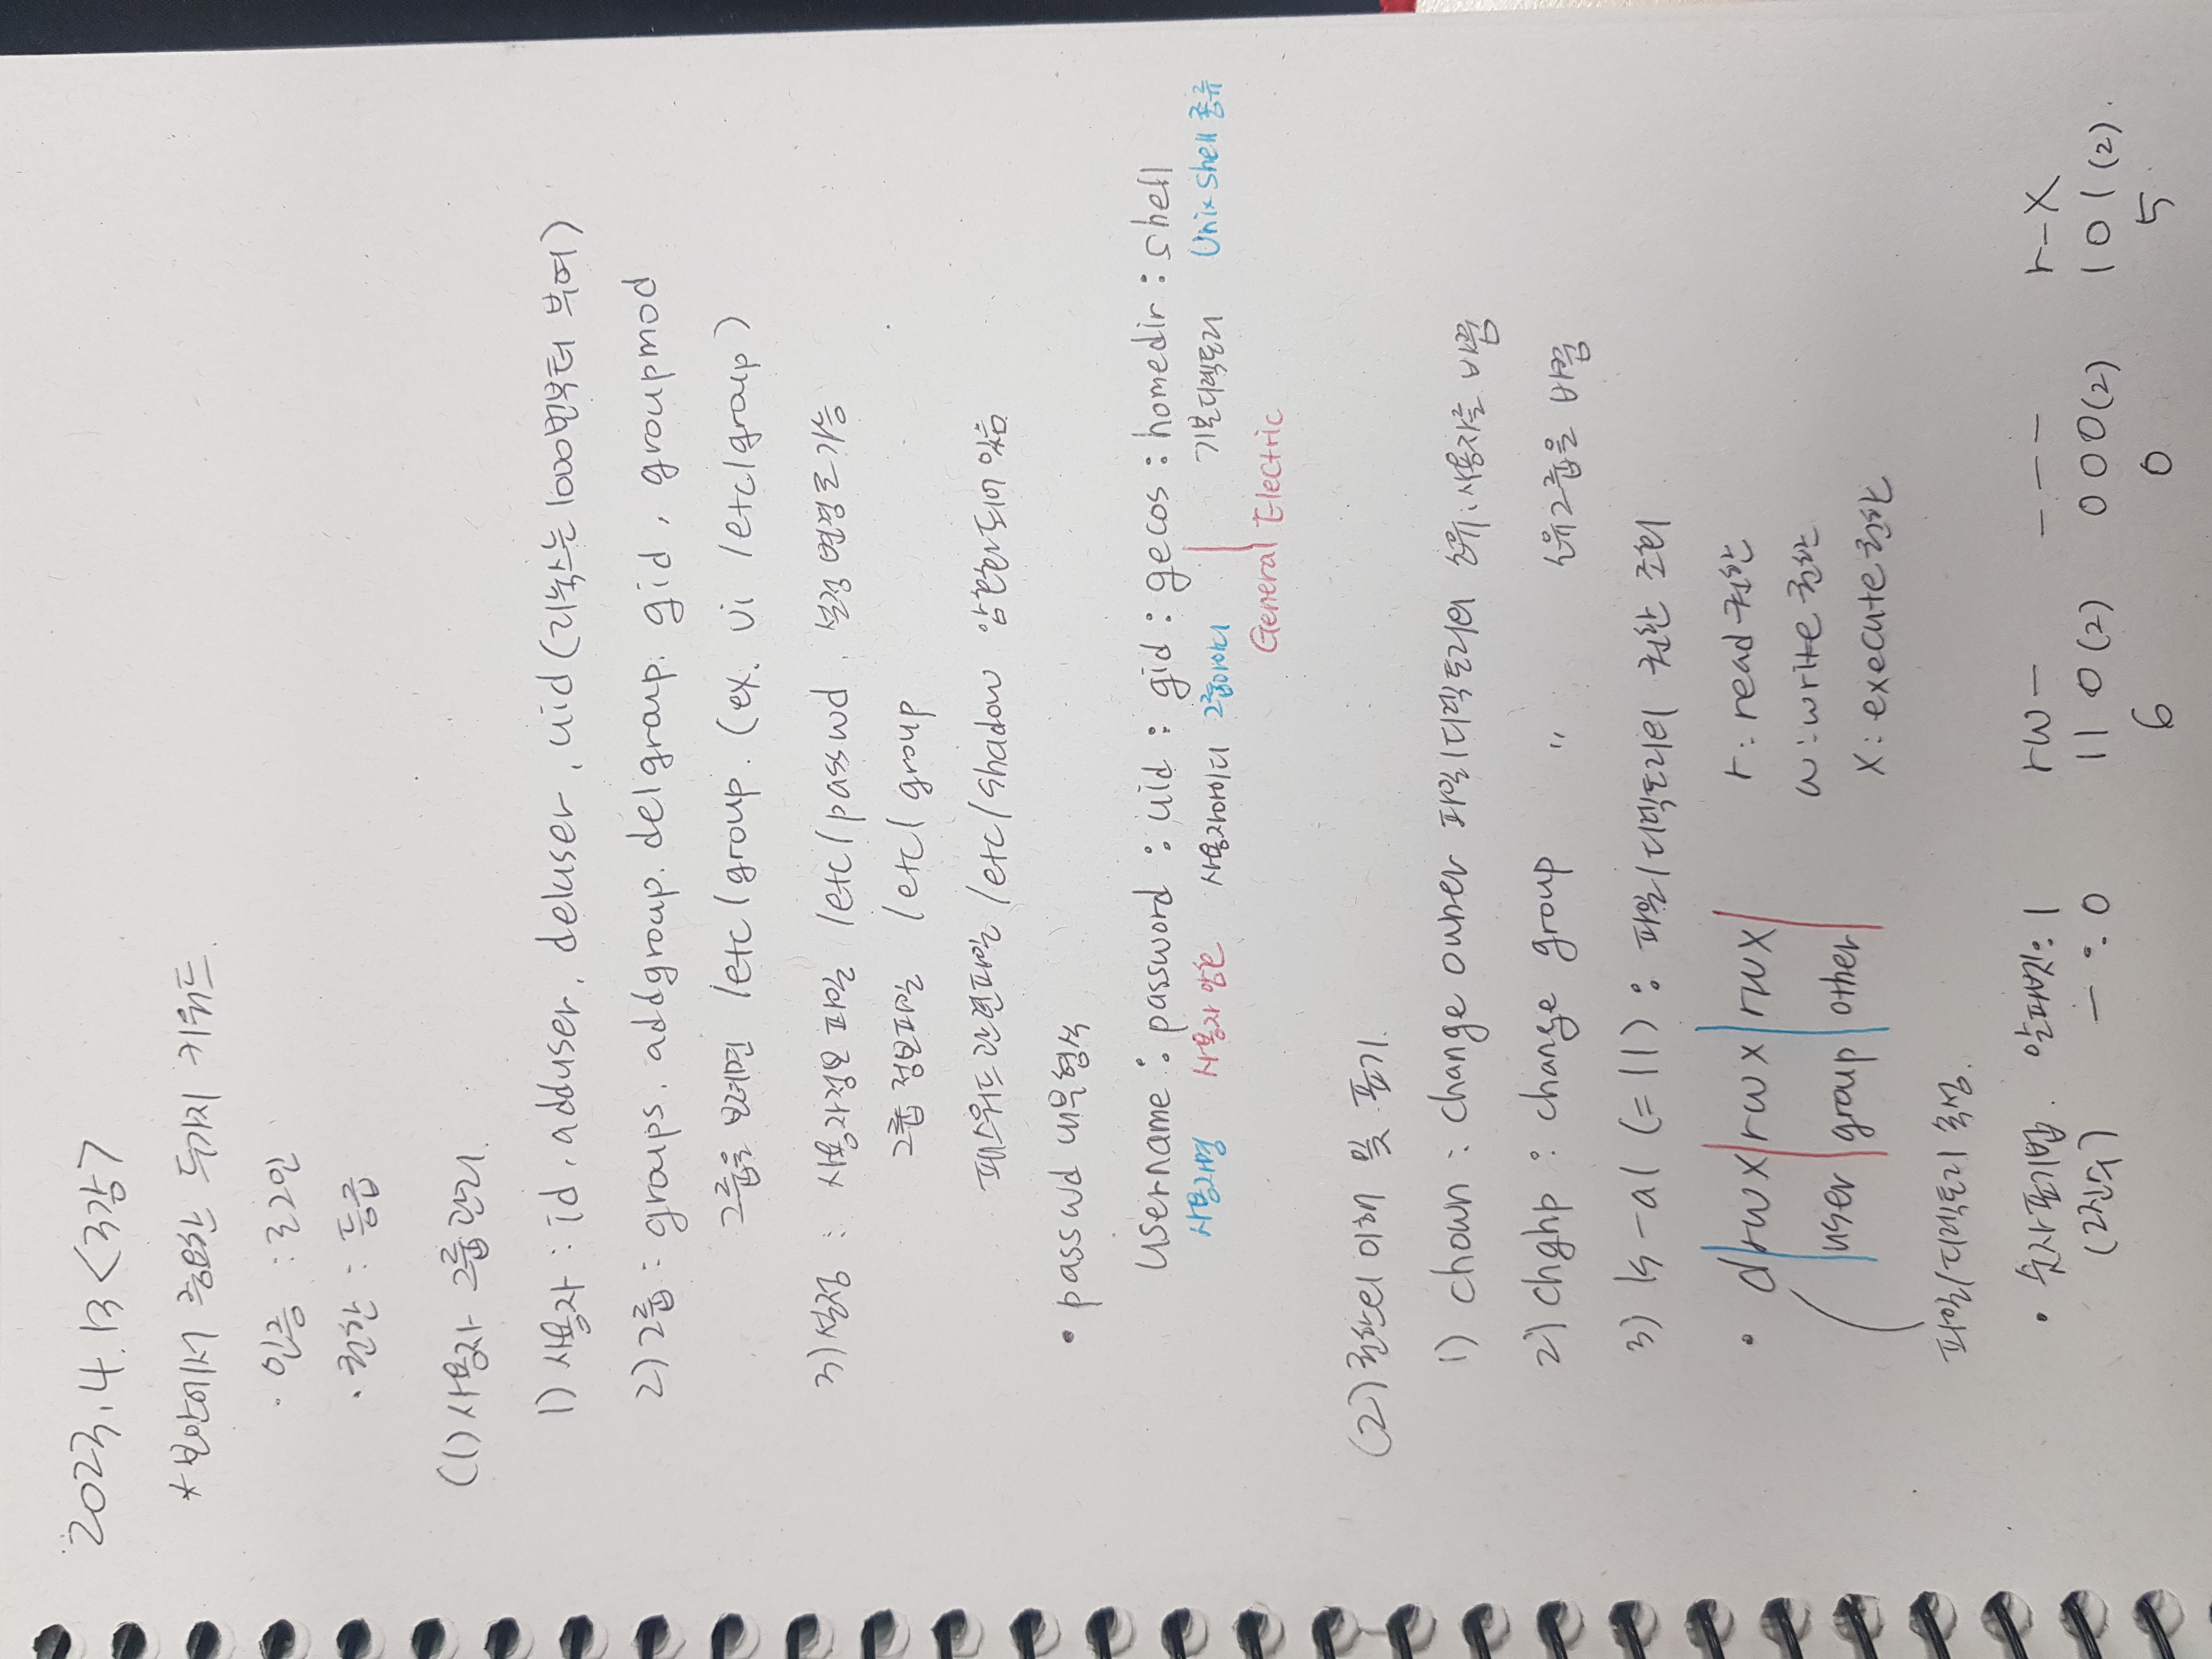 2023.4.13 <3강>
* 보안에서 중요한 두가지 키워드
· 인증 : 로그인
· 권한 : 등급
(1) 사용자 그룹관리
1) 사용자 : id, adduser, deluser, uid (리눅스는 1000번부터 부여)
2) 그룹 : groups, addgroup. delgroup. gid, groupmod
그룹을 보려면 /etc/group. (ex. vi /etc/group)
3) 설정 : 사용자정보 파일 /etc/passwd. 설정 변경도 가능
그룹 정보파일 /etc/group
패스워드 관련파일 /etc/shadow 암호화되어 있음
• passwd 내용형식
username : password : uid : gid : gecos : homedir : shell
사용자명 사용자 암호 사용자아이디 그룹아이디 기본디렉토리 Unix shell 종류
General Electric
(2) 권한의 이해 및 표기
1) chown : change owner 파일/디렉토리의 소유사용자를 바꿈
2) chghp : change group " 소유그룹을 바꿈
3) ls -al (= ll) : 파일/디렉토리의 권한 조회
• d rwx rwx rwx r : read권한
user group other w : write 권한
x : execute 권한
파일/디렉토리 속성.
• 숫자표기법. 알파벳 : 1 rw- --- r-x
(2진수) - : 0 110(2) 000(2) 101(2).
6 0 5